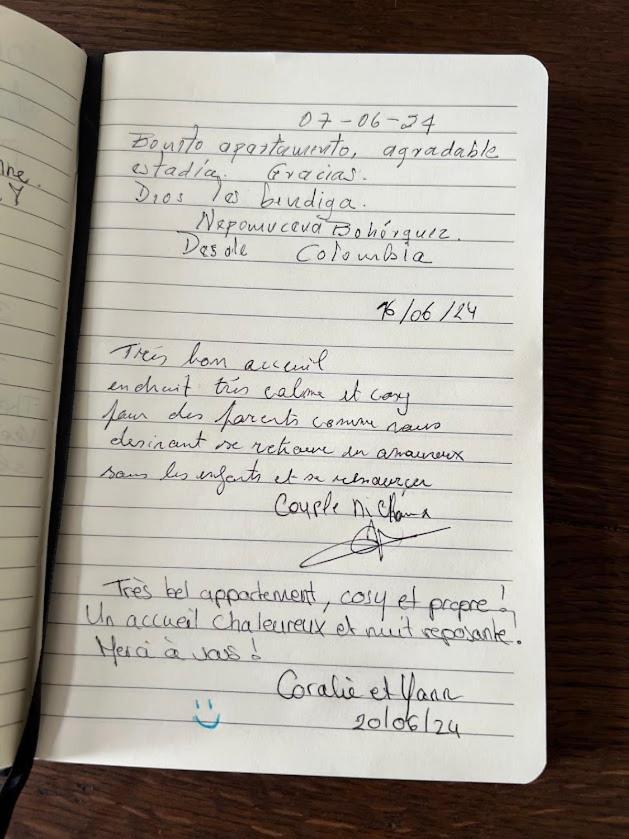 nne.
07-06-24
Bonito apartamento, agradable
estadía. Gracias.
Dios les bendiga.
Nepomuceva Bohórquez.
Desde Colombia
16/06/24
Trés bon accueil
endruit trés calme et cosy
pour des parents comme nous
desirant se retrouve en amoureux
sans les enfants et se ressourcer
Couple
Très bel appartement, cosy et propre !
Un accueil chaleureux et nuit reposante.
Merci à vous !
Coralie et Yann
20/06/24